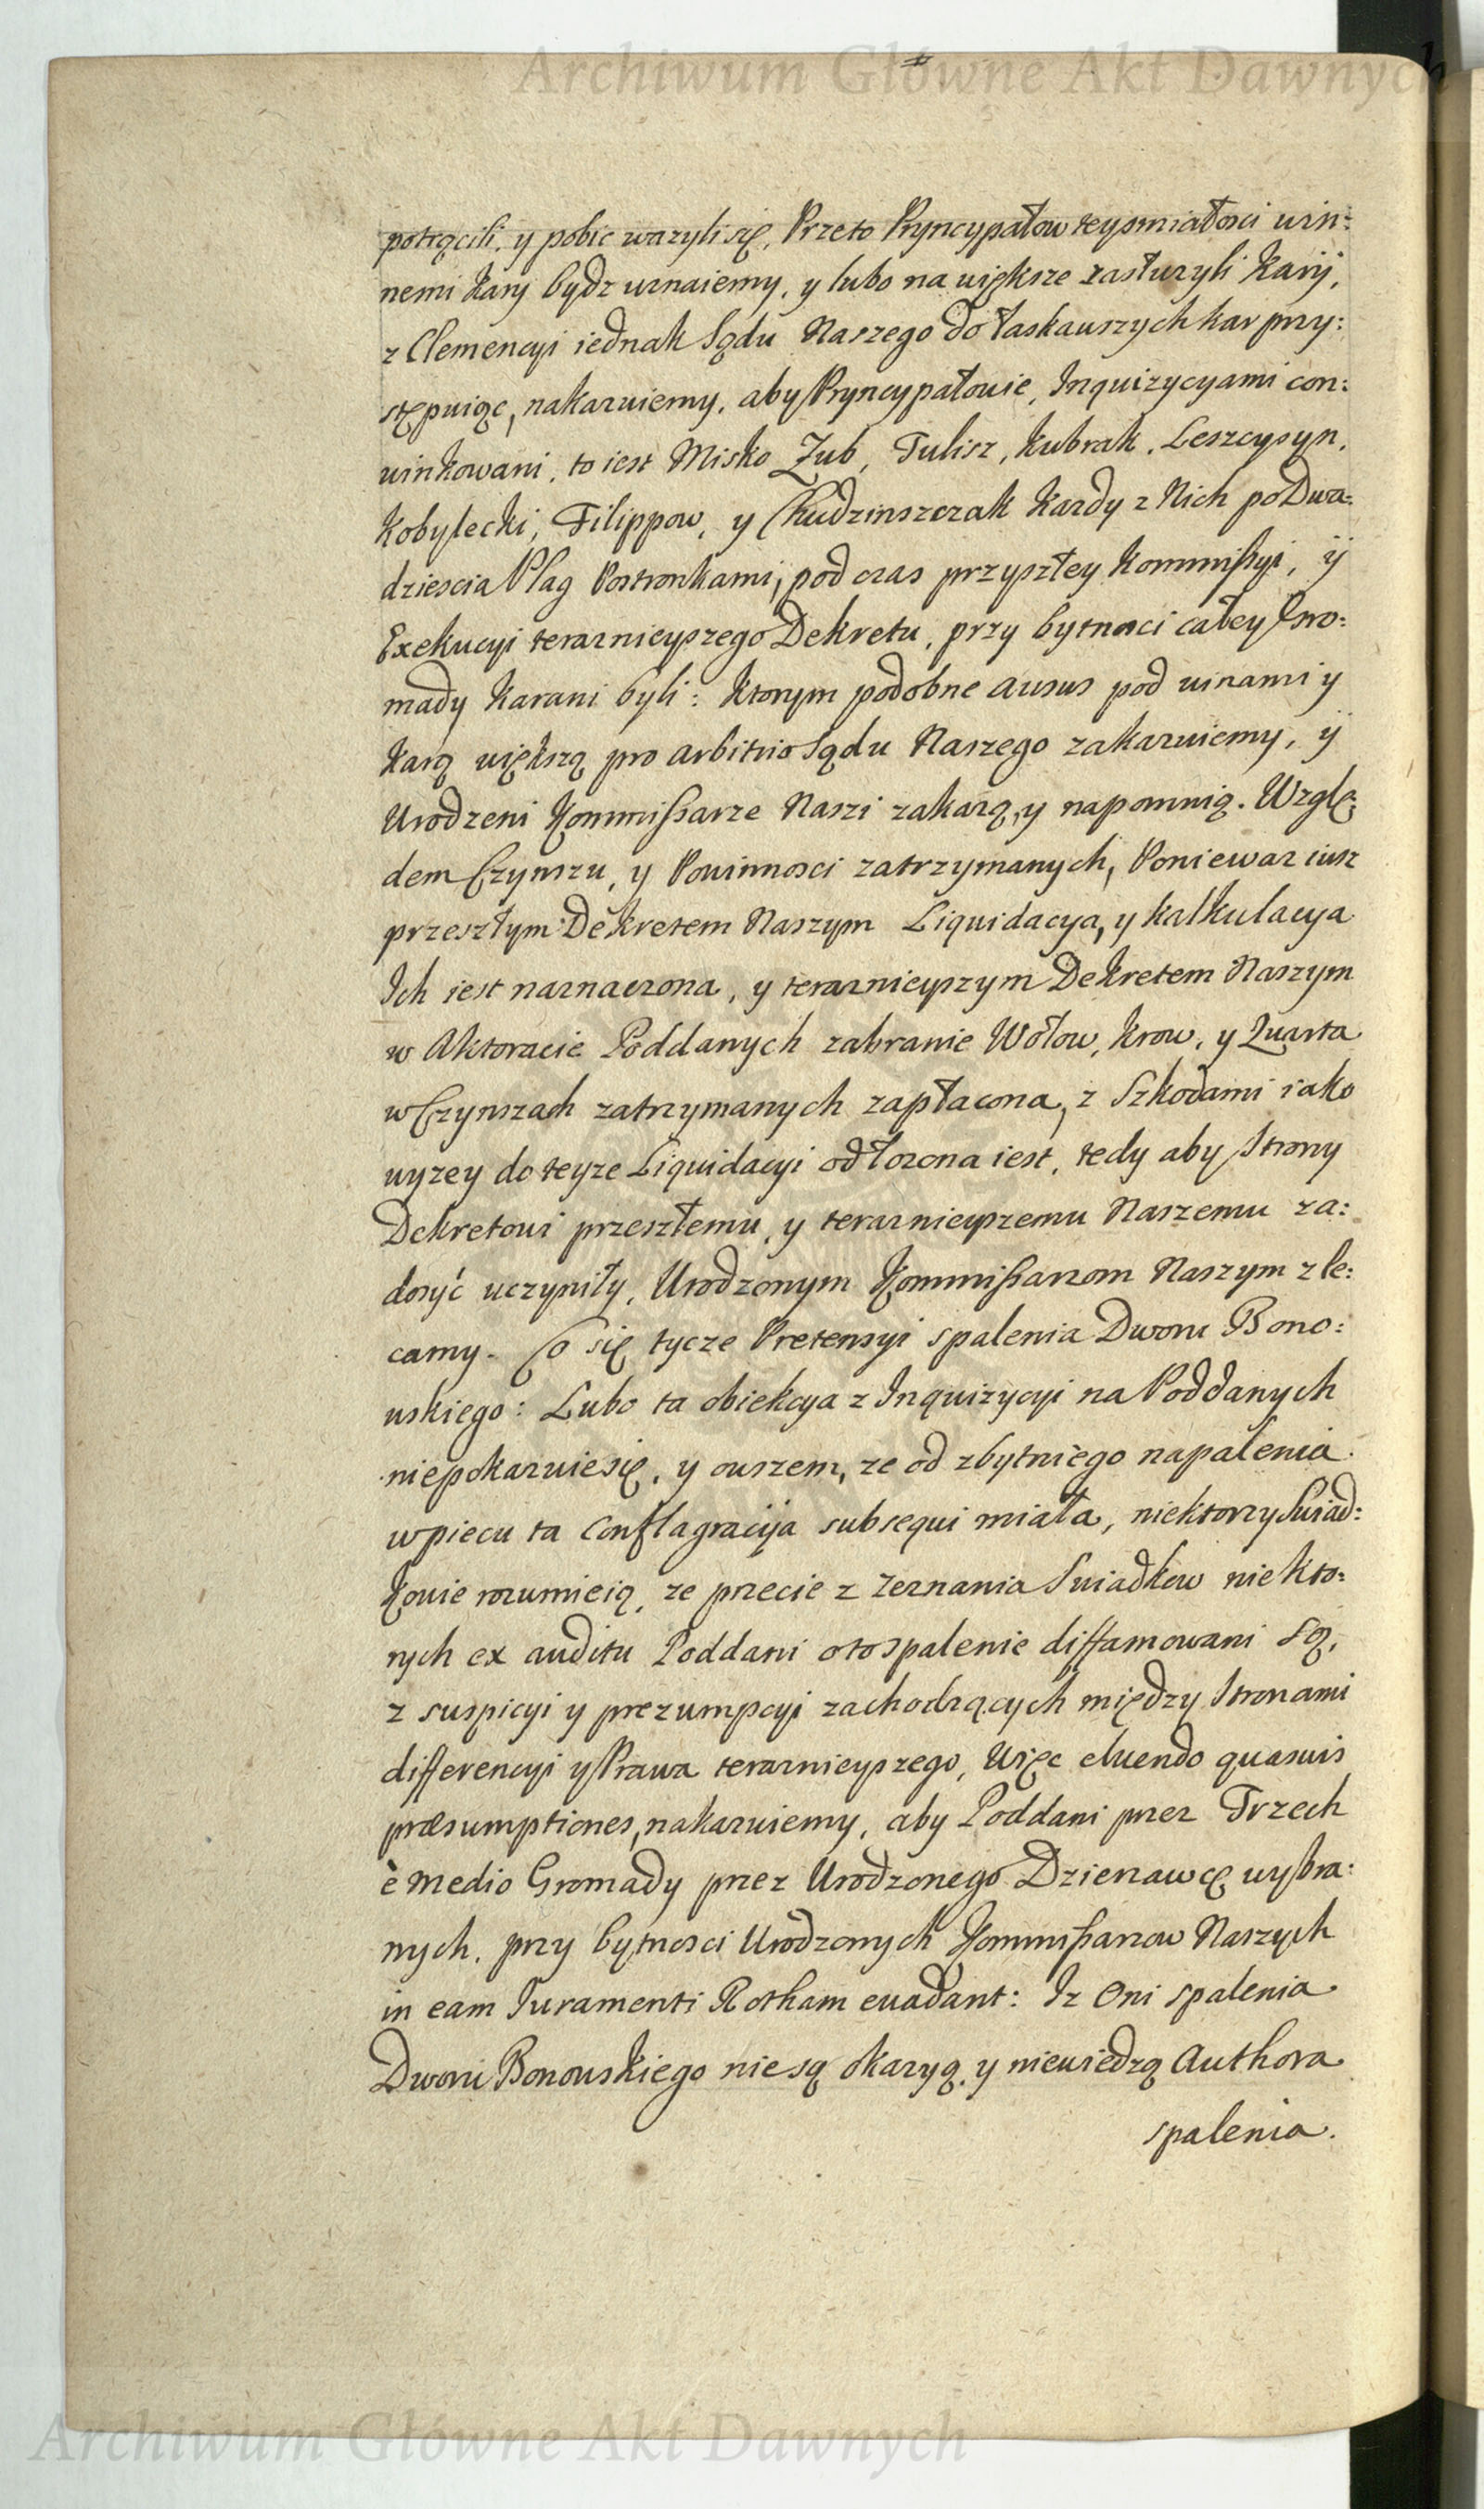 Archiwum Główne Akt Dawnych
potrącili, y pobic wazyli się, Przeto Pryncypałow tey smiałosci win:
nemi kary bydz uznaiemy, y lubo na większe zasłuzyli kary,
z Clemencyi iednak Sądu Naszego do łaskawszych kar przy:
stępuiąc, nakazuiemy, aby Pryncypałowie, Inquizycyami con:
winkowani, to iest Misko Zub, Tulisz, Kubrak, Leszczyszyn,
Kobylecki, Filippow, y Chudzinszczak kazdy z Nich po Dwa:
dziescia Plag Postronkami, pod czas przyszłey Kommissyi, y
Exekucyi teraznieyszego Dekretu, przy bytnosci całey Gro:
mady karani byli: ktorym podobne ausus pod winami y
karą większą pro arbitrio Sądu Naszego zakazuiemy, y
Urodzeni Kommissarze Naszi zakazą, y napomnią. Wzglę:
dem Czynszu, y Powinnosci zatrzymanych, Poniewaz iusz
przeszłym Dekretem Naszym Liquidacya, y kalkulacya
Ich iest naznaczona, y teraznieyszym Dekretem Naszym
w Aktoracie Poddanych zabranie Wołow, krow, y Quarta
w Czynszach zatrzymanych zapłacona, z Szkodami iako
wyzey do teyze Liquidacyi odłozona iest, tedy aby Strony
Dekretowi przeszłemu, y teraznieyszemu Naszemu za:
dosyć uczyniły, Urodzonym Kommissarzom Naszym zle:
camy. Co się tycze Pretensyi spalenia Dworu Bono:
wskiego: Lubo ta obiekcya z Inquizycyi na Poddanych
niepokazuie się, y owszem, ze od zbytniego napalenia
w piecu ta Conflagracya subsequi miała, niektorzy Swiad:
kowie rozumieią, ze przecie z zeznania Swiadkow niekto:
rych ex auditu Poddani o to spalenie diffamowani są,
z suspicyi y prezumpcyi zachodzących między Stronami
differencyi y Prawa teraznieyszego, Więc eluendo quasuis
præsumptiones, nakazuiemy, aby Poddani przez Trzech
è medio Gromady przez Urodzonego Dzierzawcę wybra:
nych, przy bytnosci Urodzonych Kommissarzow Naszych
in eam Juramenti Rotham evadant: Iz Oni spalenia
Dworu Bonowskiego nie są okazyą, y niewiedzą Authora
spalenia.
Archiwum Główne Akt Dawnych